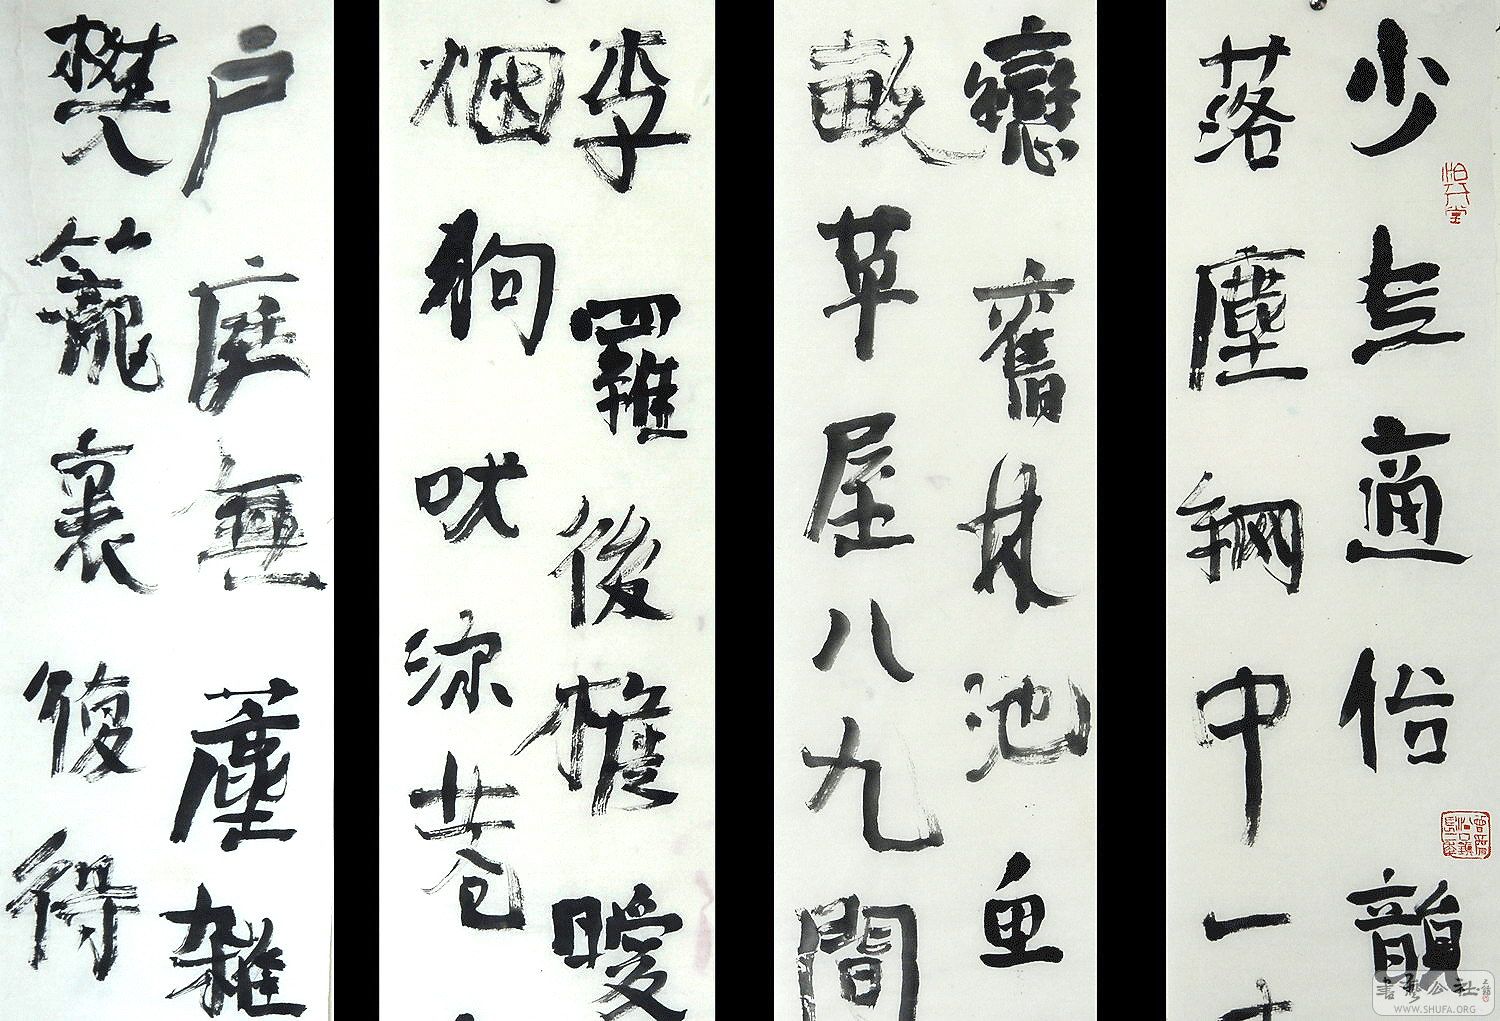 少亡適俗韻
落塵網中一
戀舊林池魚
畝草屋八九間
李羅後檐曖
烟狗吠深巷
户庭無塵雜
樊籠裏復得
書藝公社
WWW.SHUFA.ORG